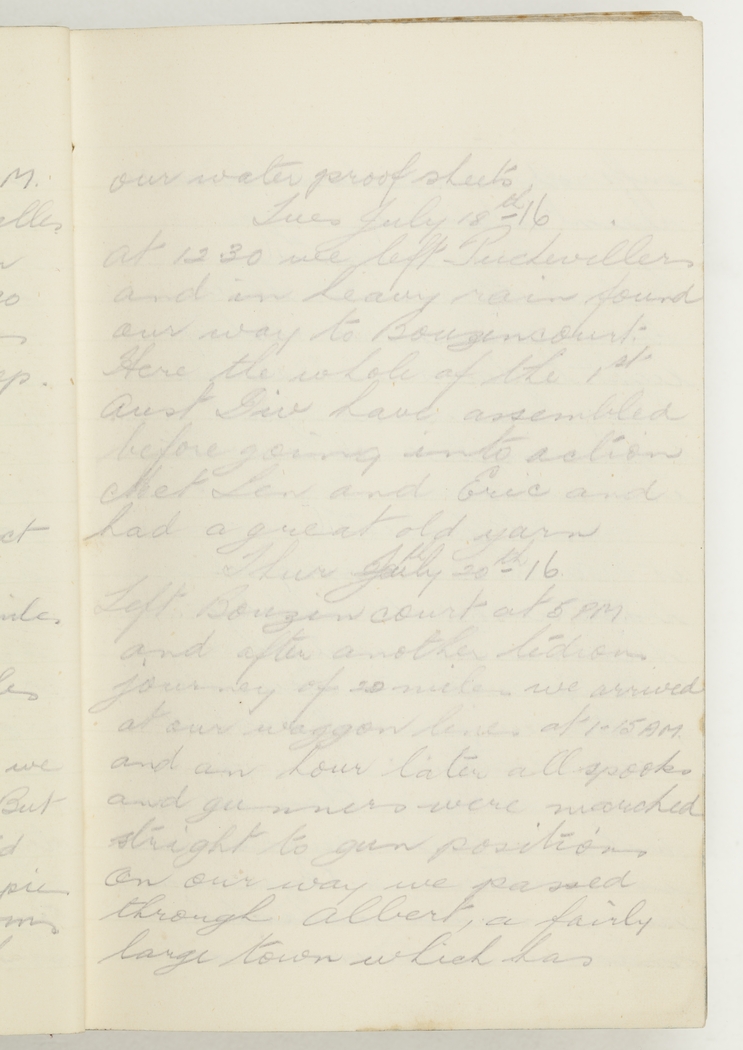 M.
our water proof sheets
Tues July 18th-16
at 12 30 we left Puchevillers
and in heavy rain found
our way to Bouzincourt.
Here the whole of the 1st
Aust Div have assembled
before going into action
Met Len and Eric and
had a great old yarn
ct
Thur July 20th-16.
Left Bouzincourt at 5 PM
and after another tedious
journey of 20 miles we arrived
at our waggon lines at 1-15 AM.
we
and an hour later all spooks
But
and gunners were marched
stright to gun positions
on our way we passed
through Albert, a fairly
large town which has